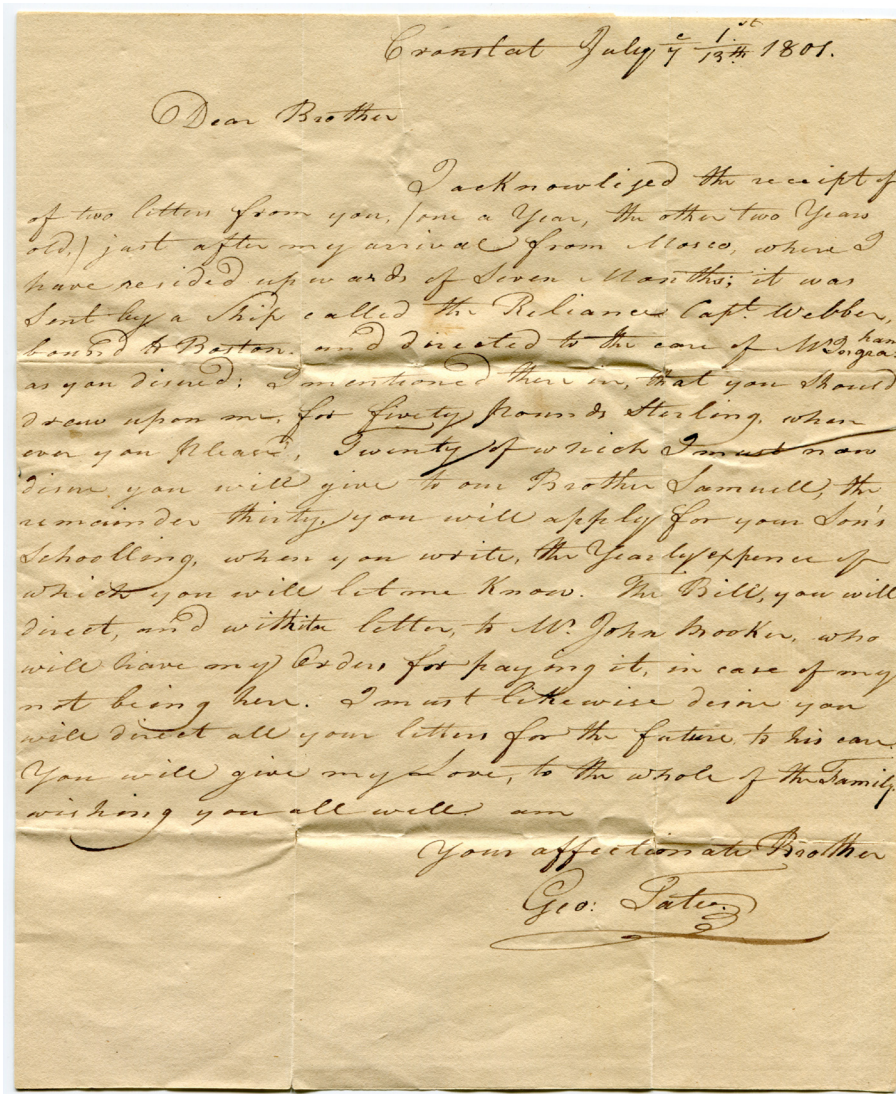 Cronstat July ye 1st/13th 1801.
Dear Brother
I acknowliged the receipt of
of two letters from you, (one a Year, the other two Years
old,) just after my arrival from Mosco, where I
have resided upwards of Seven Months; it was
Sent by a Ship called the Reliance Capt. Webber,
bound to Boston. and directed to the care of Mr Ingraham
as you disired: I mentioned there in, that you Should
draw upon me, for fivety Pounds Sterling, when
ever you Pleased, Twenty of which I must now
disire you will give to our Brother Samuell, the
remainder thirty, you will apply for your Son's
Schoolling, when you write, the Yearly expence of
which you will let me Know. The Bill, you will
direct, and with letter, to Mr. John Booker, who
will have my Orders for paying it, in case of my
not being here. I must likewise desire you
will direct all your letters for the future to his care.
You will give my Love, to the whole of the Family
wishing you all well am
Your affectionate Brother
Geo: Tate.